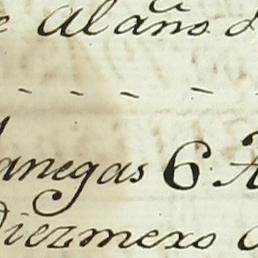 e al año
- - - - -
anegas 6
Diezmero